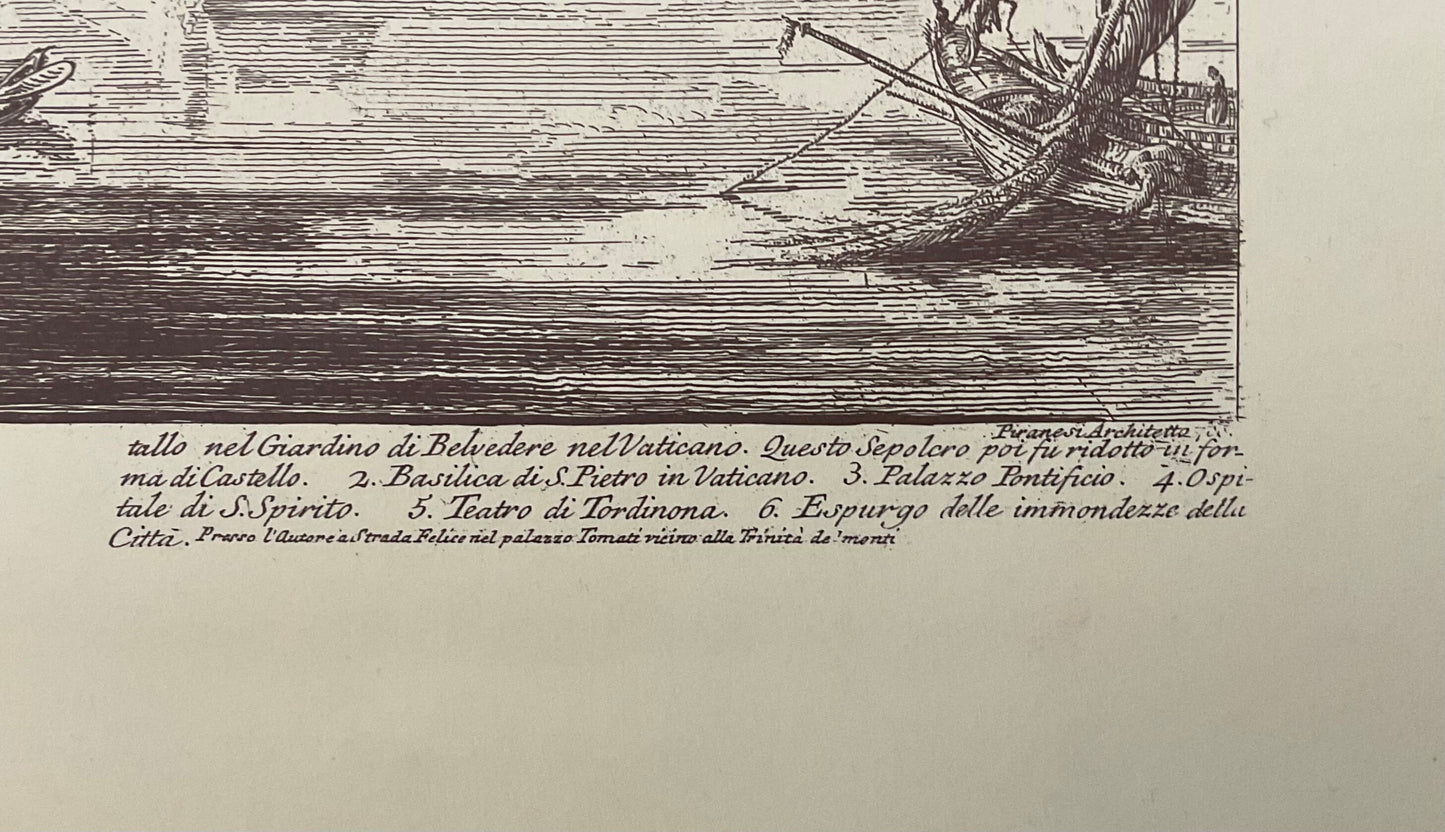 Piranesi Architetto
tallo nel Giardino di Belvedere nel Vaticano. Questo Sepolcro poi fu ridotto in for-
ma di Castello. 2. Basilica di S. Pietro in Vaticano. 3. Palazzo Pontificio. 4. Ospi-
tale di S. Spirito. 5. Teatro di Tordinona. 6. Espurgo delle immondezze della
Città. Presso l'Autore a Strada Felice nel palazzo Tomati vicino alla Trinità de' monti